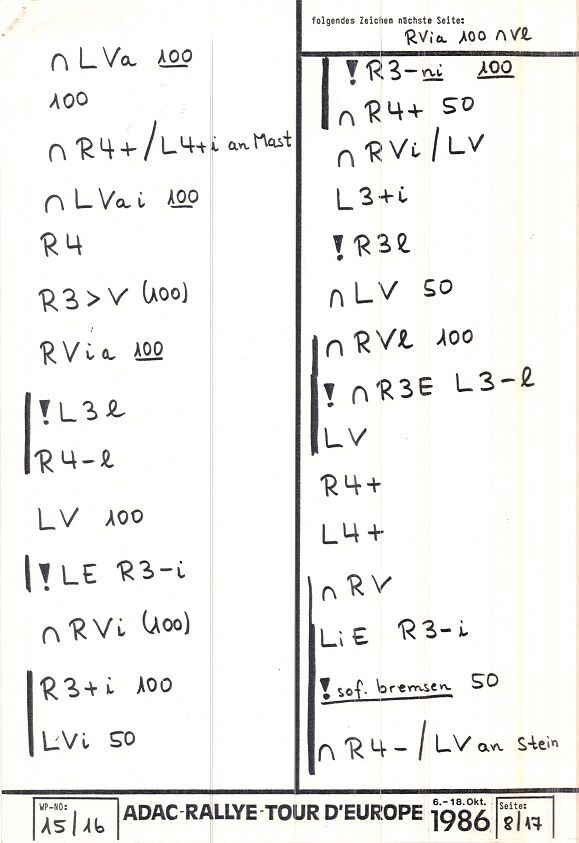 ∩ LVa 100
100
∩ R4+/L4+i an Mast
∩ LVai 100
R4
R3>V (100)
RVia 100
! L3l
R4-l
LV 100
! LE R3-i
∩ RVi (100)
R3+i 100
LVi 50
folgendes Zeichen nächste Seite:
RVia 100 ∩Vl
! R3-ni 100
∩ R4+ 50
∩ RVi/LV
L3+i
! R3l
∩ LV 50
∩ RVl 100
! ∩ R3E L3-l
LV
R4+
L4+
∩ RV
LiE R3-i
! sof. bremsen 50
∩ R4-/LV an Stein
WP-NO:
15/16
ADAC-RALLYE-TOUR D'EUROPE
6.-18. Okt.
1986
Seite:
8/17